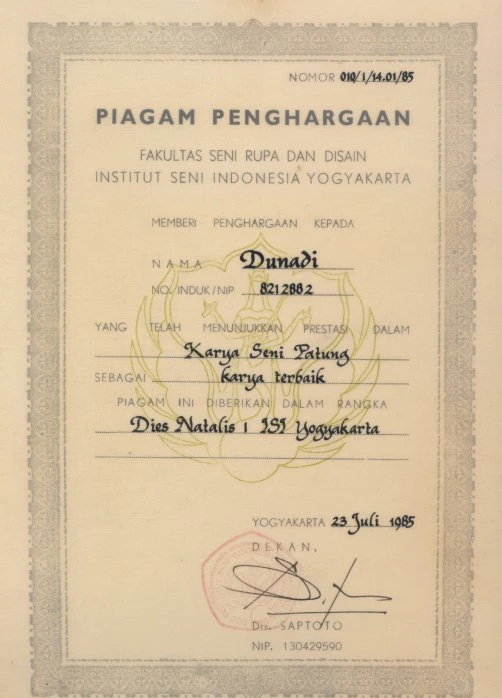 NOMOR 010/1/14.01/85
PIAGAM PENGHARGAAN
FAKULTAS SENI RUPA DAN DISAIN
INSTITUT SENI INDONESIA YOGYAKARTA
MEMBERI PENGHARGAAN KEPADA
NAMA Dunadi
NO. INDUK/NIP 8212882
YANG TELAH MENUNJUKKAN PRESTASI DALAM
Karya Seni Patung
SEBAGAI karya terbaik
PIAGAM INI DIBERIKAN DALAM RANGKA
Dies Natalis 1 ISI Yogyakarta
YOGYAKARTA 23 Juli 1985
DEKAN,
Drs. SAPTOTO
NIP. 130429590